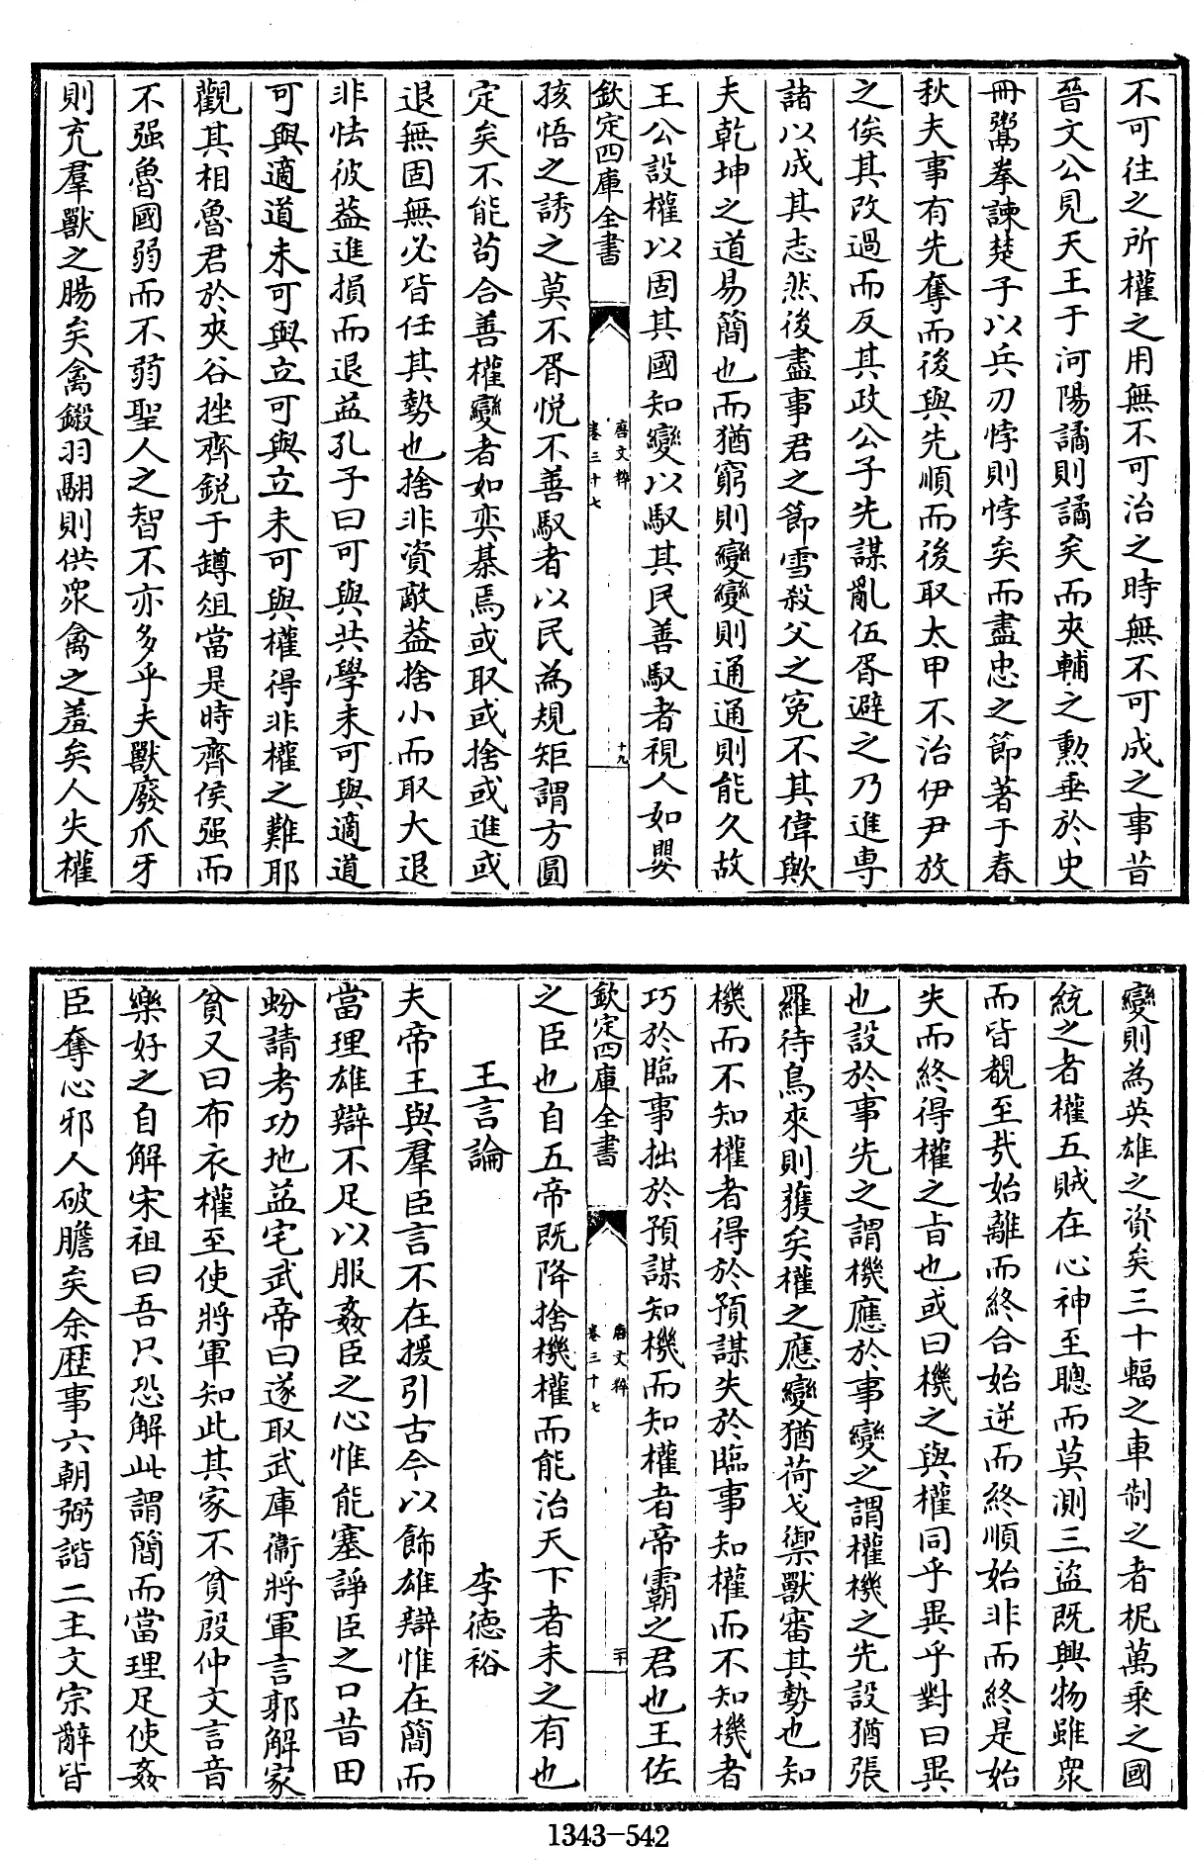 不可往之所權之用無不可治之時無不可成之事昔
晉文公見天王于河陽譎則譎矣而夾輔之勲垂於史
冊鬻拳諫楚子以兵刃悖則悖矣而盡忠之節著于春
秋夫事有先奪而後與先順而後取太甲不治伊尹放
之俟其改過而反其政公子光謀亂伍胥避之乃進専
諸以成其志然後盡事君之節雪殺父之寃不其偉歟
夫乾坤之道易簡也而猶窮則變變則通通則能久故
王公設權以固其國知變以馭其民善馭者視人如嬰
欽定四庫全書
唐文粹
卷三十七
十九
孩悟之誘之莫不胥悦不善馭者以民為規矩謂方圓
定矣不能苟合善權變者如奕棊焉或取或捨或進或
退無固無必皆任其勢也捨非資敵葢捨小而取大退
非怯彼葢進損而退益孔子曰可與共學未可與適道
可與適道未可與立可與立未可與權得非權之難耶
觀其相魯君於夾谷挫齊鋭于罇俎當是時齊侯强而
不强魯國弱而不弱聖人之智不亦多乎夫獸廢爪牙
則充羣獸之腸矣禽鎩羽翮則供衆禽之羞矣人失權
變則為英雄之資矣三十輻之車制之者柅萬乘之國
統之者權五賊在心神至聰而莫測三盜既興物雖衆
而皆覩至㢤始離而終合始逆而終順始非而終是始
失而終得權之㫖也或曰機之與權同乎異乎對曰異
也設於事先之謂機應於事變之謂權機之先設猶張
羅待鳥來則獲矣權之應變猶荷戈禦獸審其勢也知
機而不知權者得於預謀失於臨事知權而不知機者
巧於臨事拙於預謀知機而知權者帝霸之君也王佐
欽定四庫全書
唐文粹
卷三十七
二十
之臣也自五帝既降捨機權而能治天下者未之有也
王言論 李徳裕
夫帝王與羣臣言不在援引古今以飾雄辯惟在簡而
當理雄辯不足以服姦臣之心惟能塞諍臣之口昔田
蚡請考功地益宅武帝曰遂取武庫衞將軍言郭解家
貧又曰布衣權至使將軍知此其家不貧殷仲文言音
樂好之自解宋祖曰吾只恐解此謂簡而當理足使姦
臣奪心邪人破膽矣余歴事六朝弼諧二主文宗辭皆
1343-542